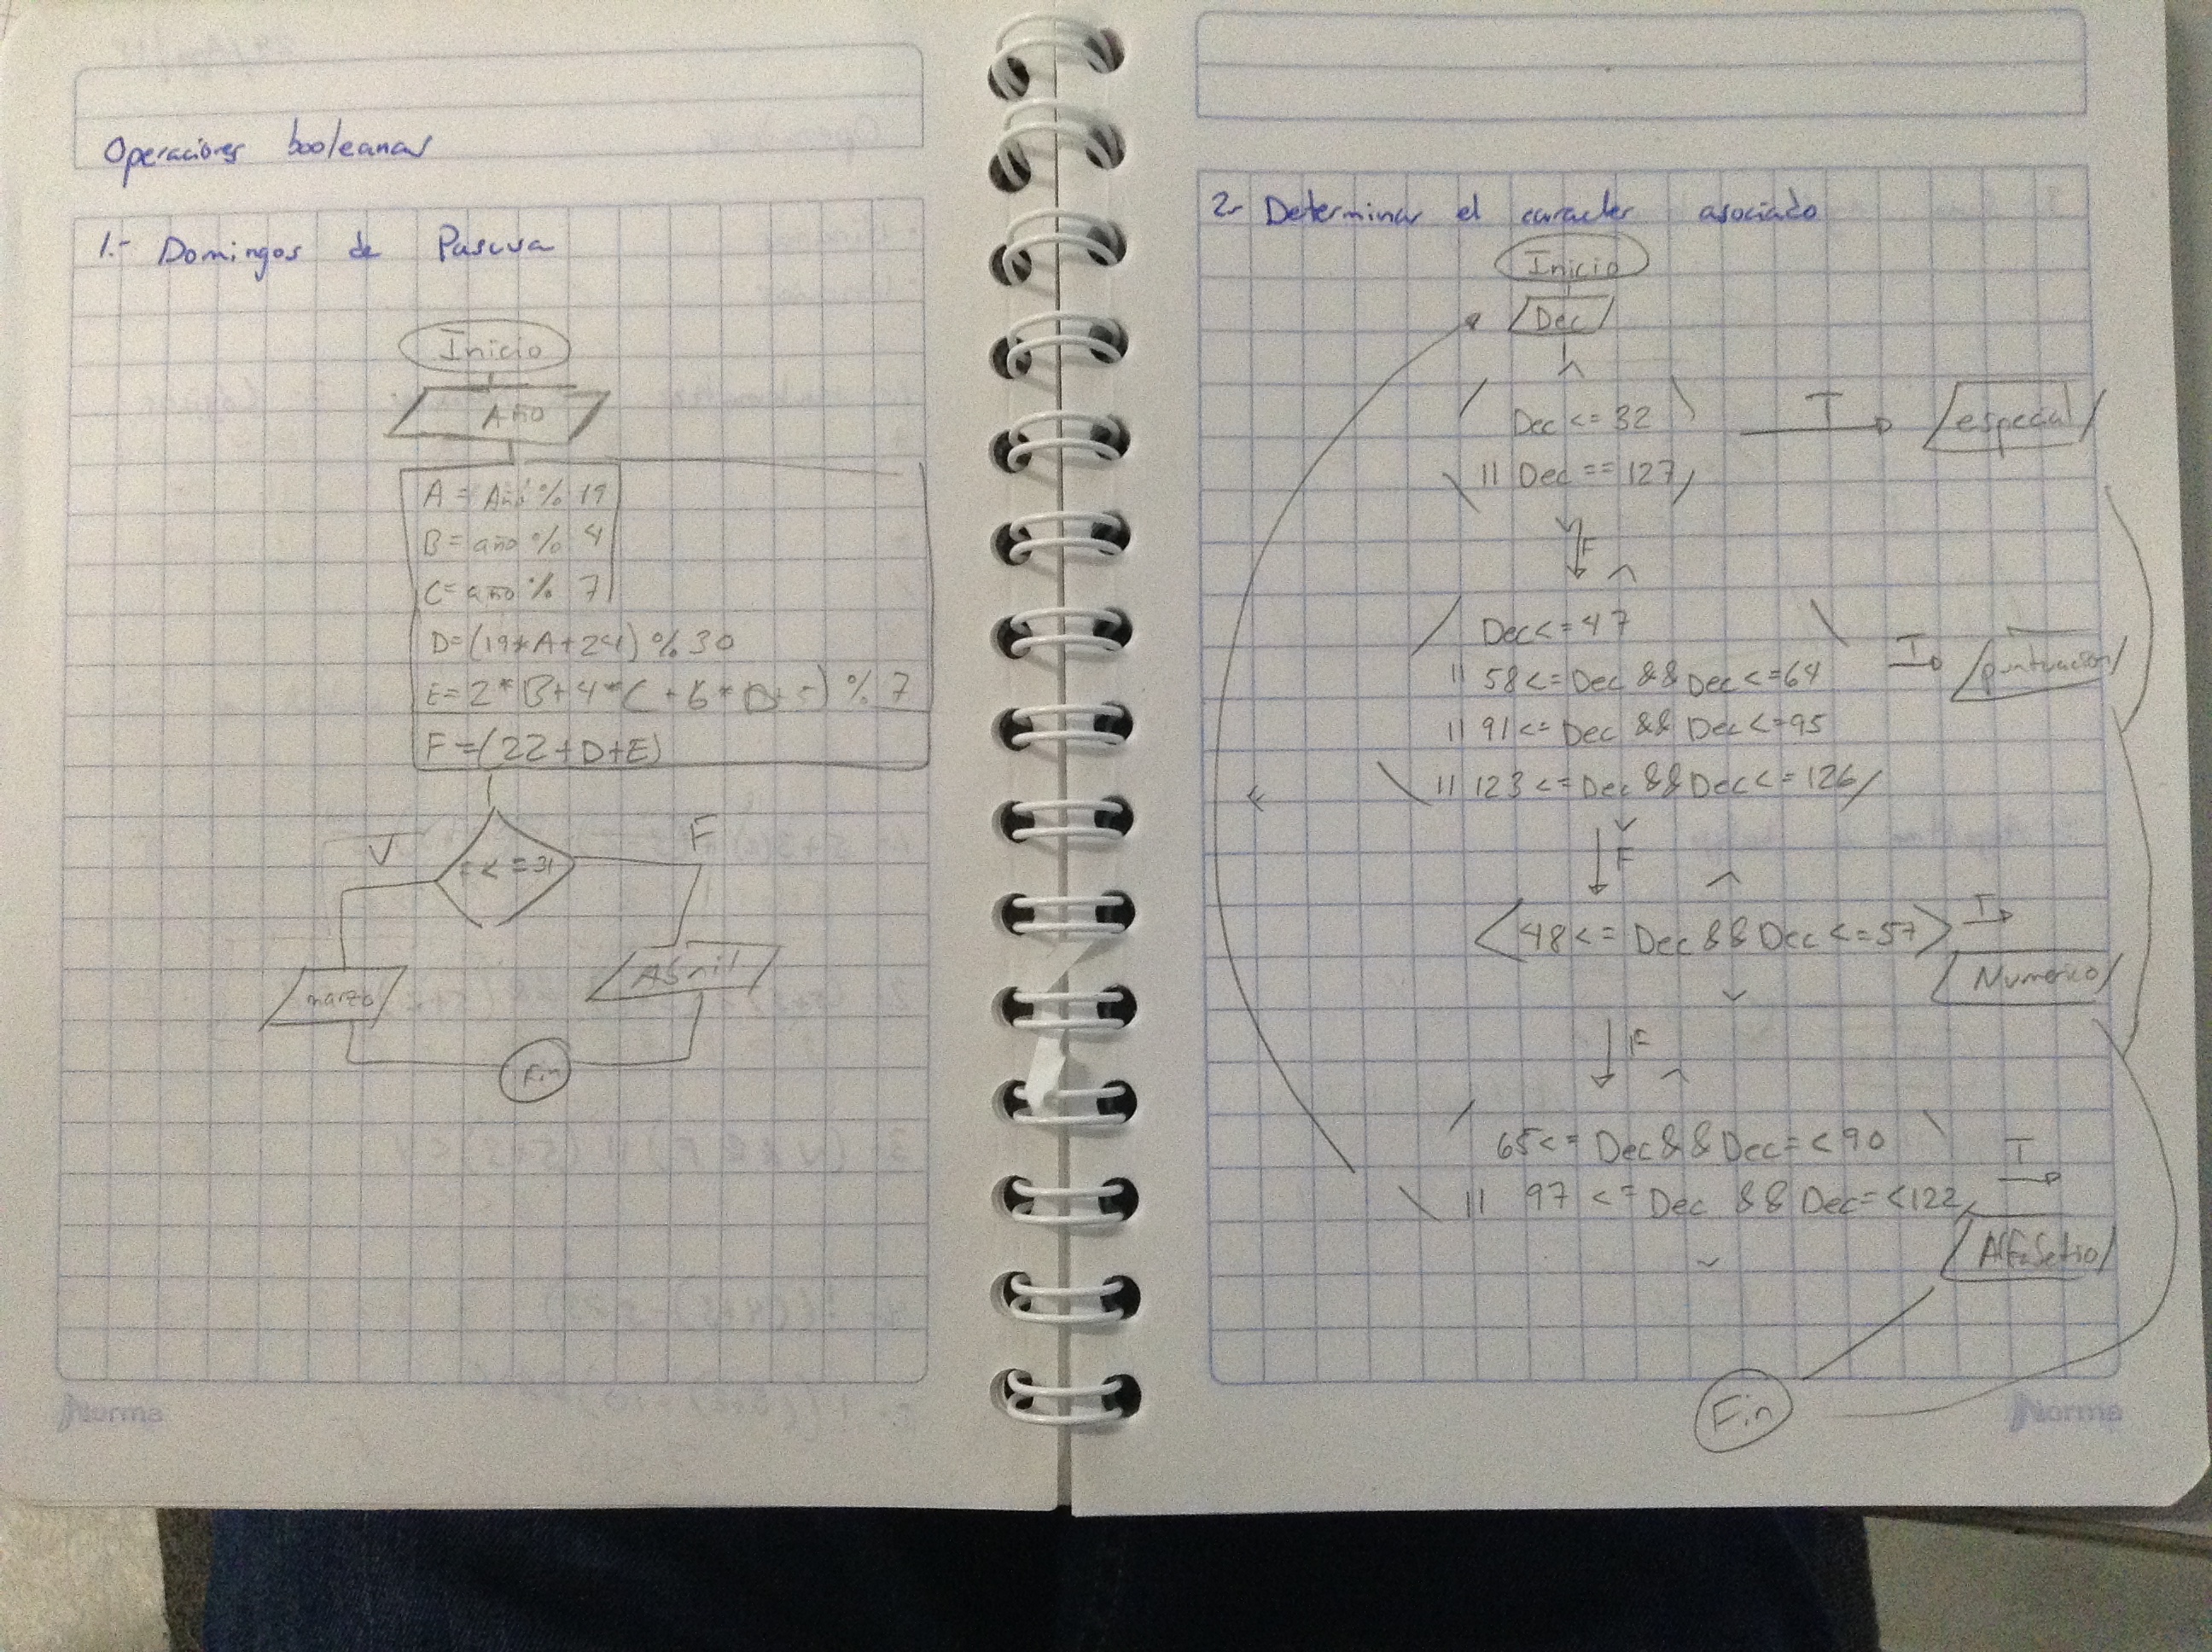 Operaciones booleanas
1.- Domingos de Pascua
Inicio
Año
A = Año % 19
B = año % 4
C = año % 7
D=(19*A+24) % 30
E=2*B+4*C+6*D+5) % 7
F=(22+D+E)
V
<=31
F
marzo
Abril
Fin
Norma
2- Determinar el caracter asociado
Inicio
Dec
Dec <= 32
T
especial
|| Dec == 127
F
Dec<=47
|| 58<=Dec && Dec<=64
T
puntuacion
|| 91<=Dec && Dec<=95
|| 123<=Dec && Dec<=126
F
48<=Dec && Dec<=57
T
Numerico
F
65<=Dec && Dec=<90
T
|| 97 <=Dec && Dec=<122
Fin
Norma